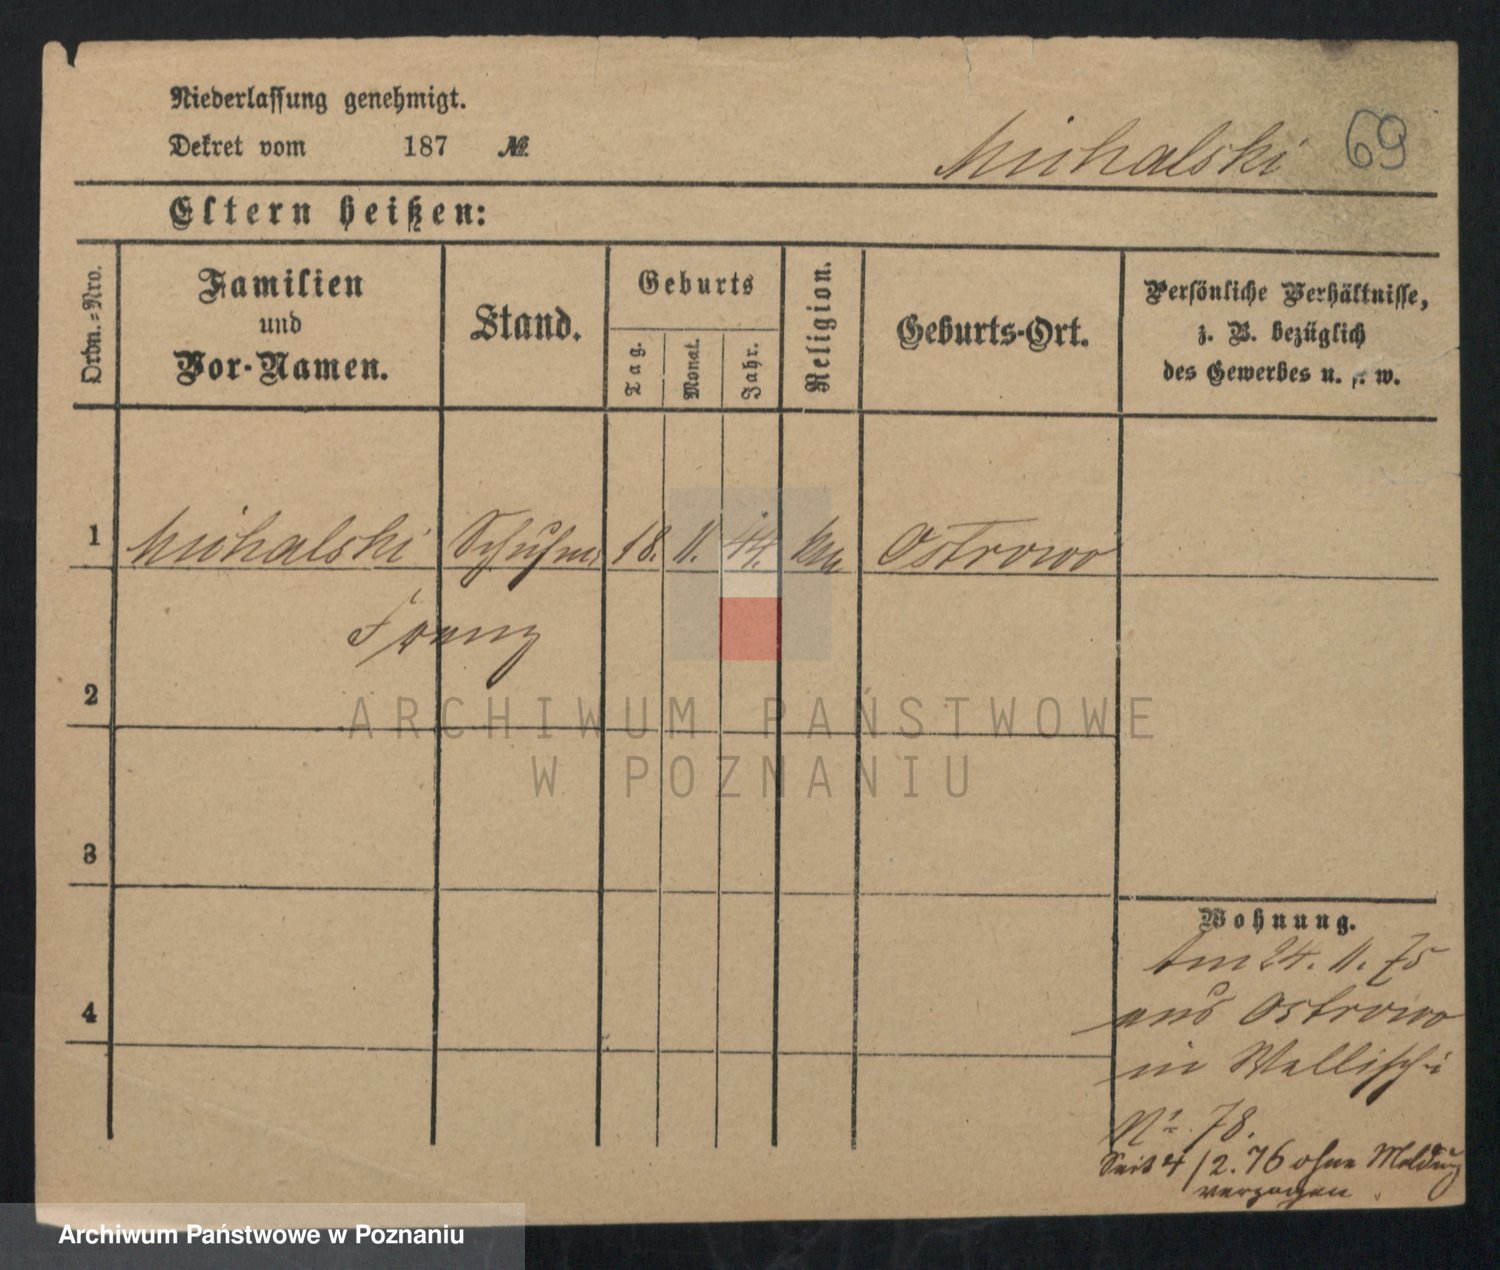 Niederlassung genehmigt.
Dekret vom 187 №
Michalski 69
Eltern heißen:
Ordn.-Nro.
Familien
und
Vor-Namen.
Stand.
Geburts
Tag.
Monat.
Jahr.
Religion.
Geburts-Ort.
Persönliche Verhältnisse,
z. B. bezüglich
des Gewerbes u. s. w.
1 Michalski 18. 11. 44. Ostrowo
Franz
2
ARCHIWUM PAŃSTWOWE
W POZNANIU
3
Wohnung.
Am 24. 11. 75
aus Ostrowo
4
in Wallischei
No 78.
Seit 4/2. 76 ohne Meldung
verzogen.
Archiwum Państwowe w Poznaniu